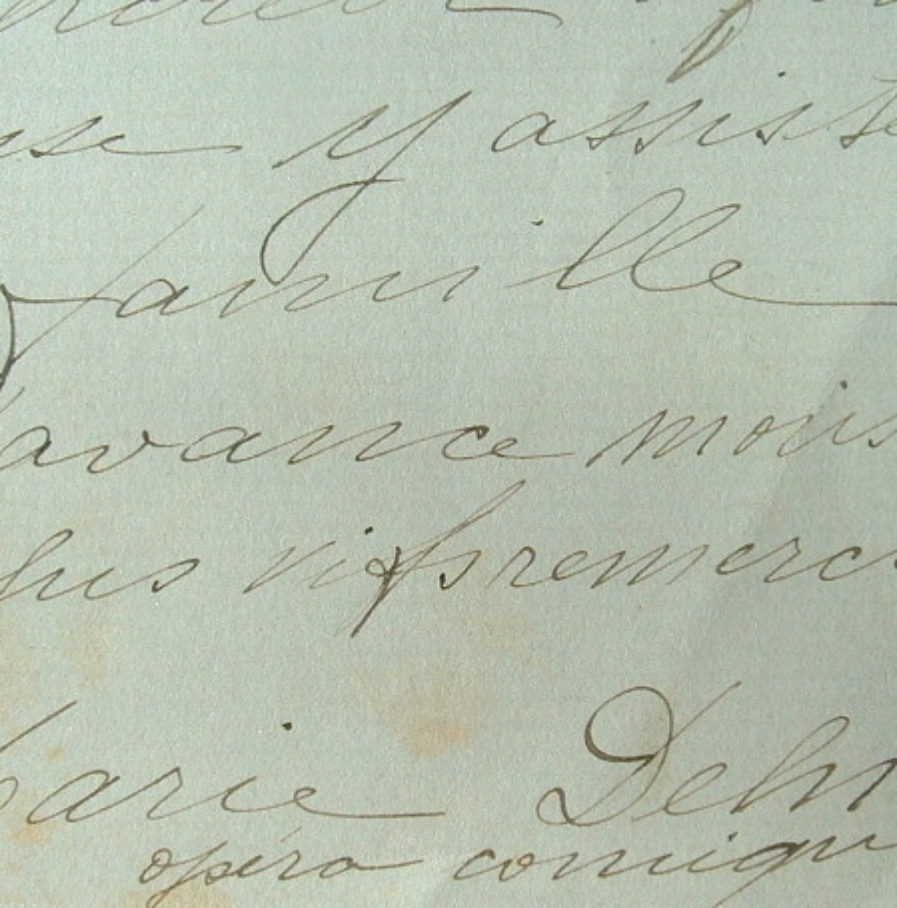 use y assiste
famille
avance mons
plus vifs remerci
Marie Deln
opéra comiqu